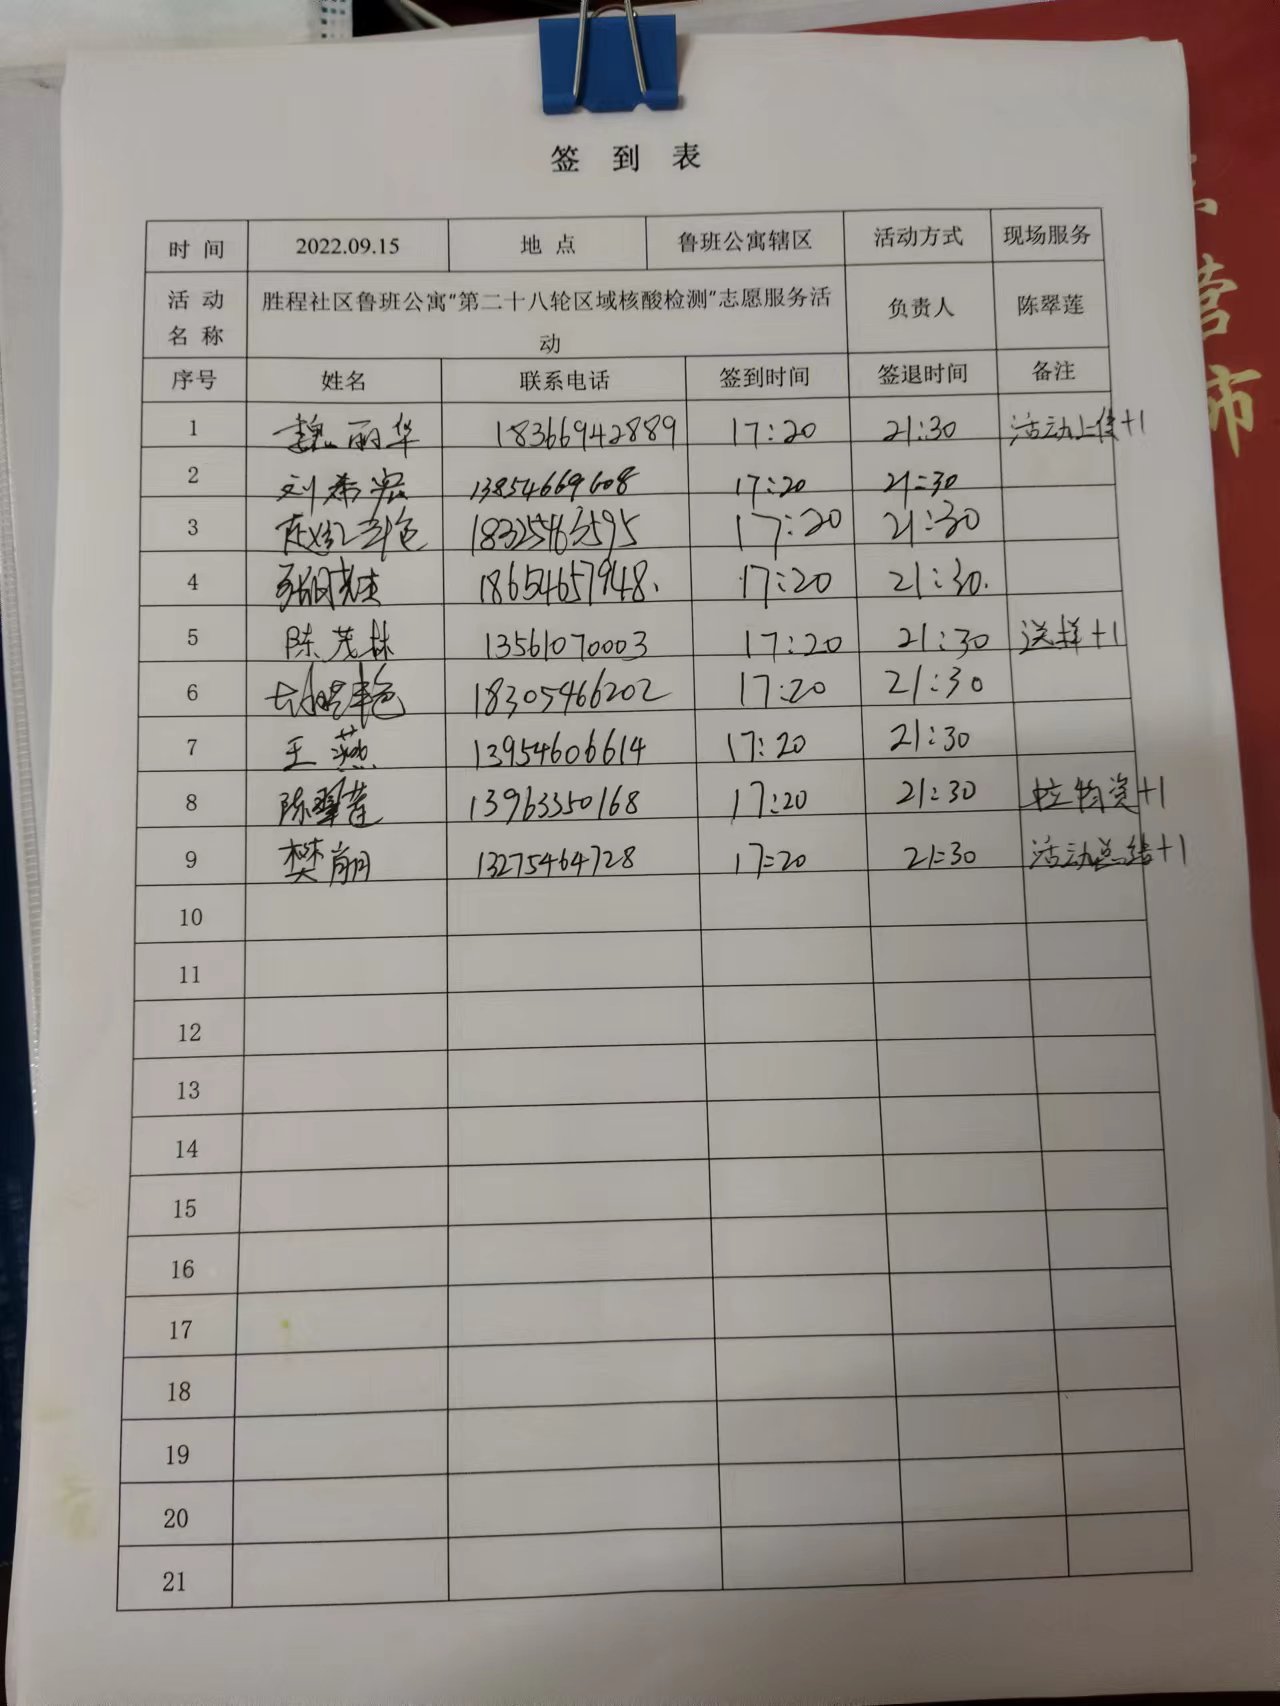 签 到 表
时 间 2022.09.15 地 点 鲁班公寓辖区 活动方式 现场服务
活 动 名 称 胜程社区鲁班公寓“第二十八轮区域核酸检测”志愿服务活动 负责人 陈翠莲
序号 姓名 联系电话 签到时间 签退时间 备注
1 魏丽华 18366942889 17:20 21:30 活动上传+1
2 刘希宏 13854669608 17:20 21:30
3 18325463595 17:20 21:30
4 18654657948. 17:20 21:30.
5 陈茂林 13561070003 17:20 21:30 送样+1
6 18305466202 17:20 21:30
7 王燕 13954606614 17:20 21:30
8 陈翠莲 13963350168 17:20 21:30 拉物资+1
9 樊朋 13275464728 17:20 21:30 活动总结+1
10
11
12
13
14
15
16
17
18
19
20
21
营
市